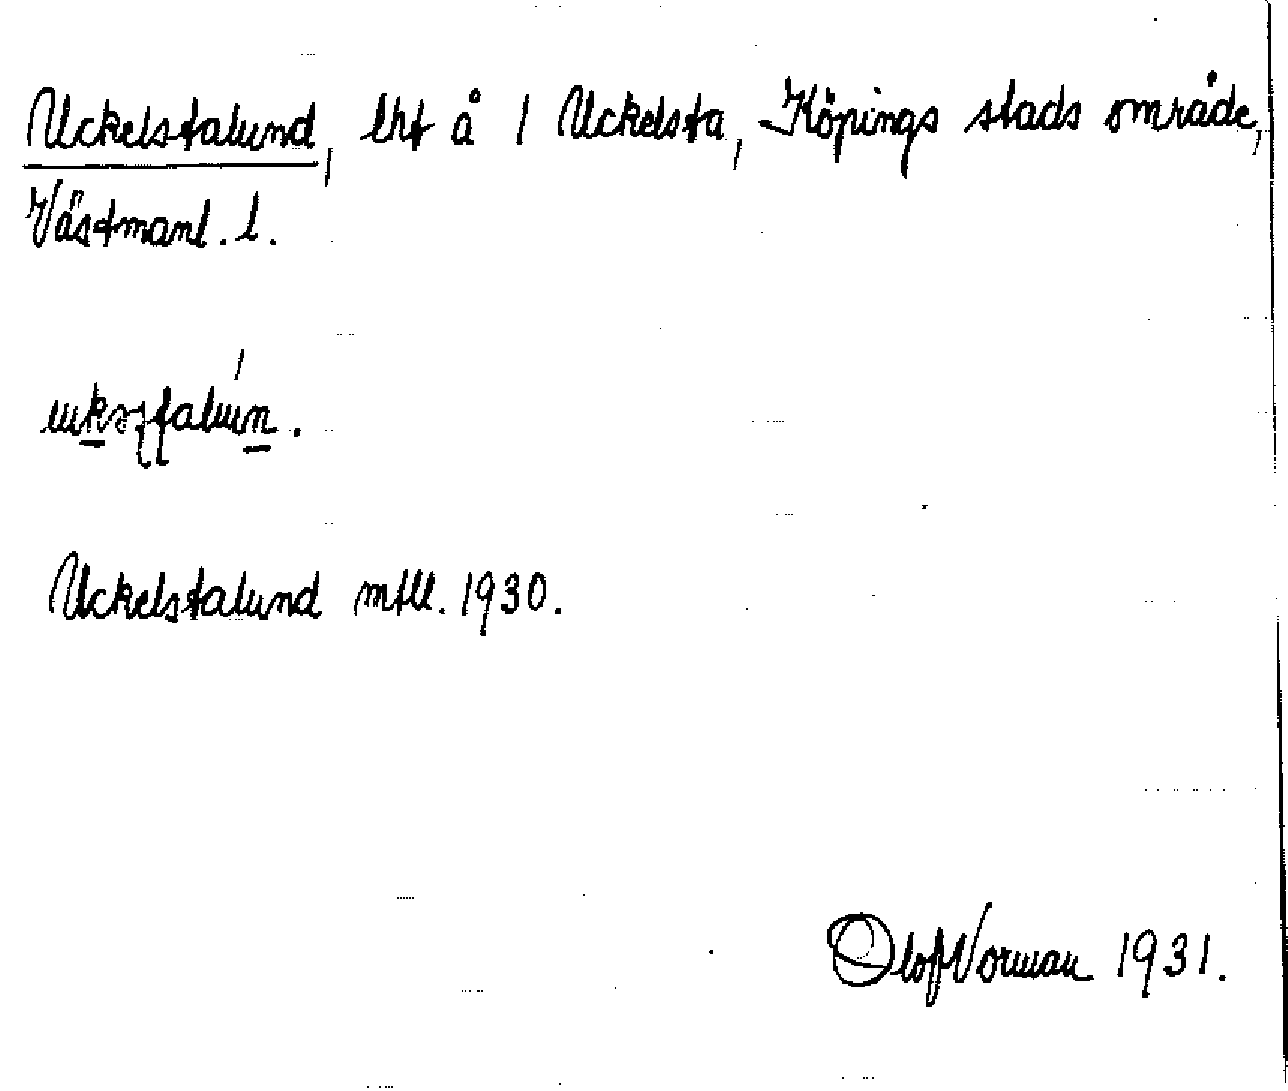 Uckelstalund, lht å 1 Uckelsta, Köpings stads område,
Västmanl. l.
Uckelstalund mtll. 1930.
Olof Norman 1931.